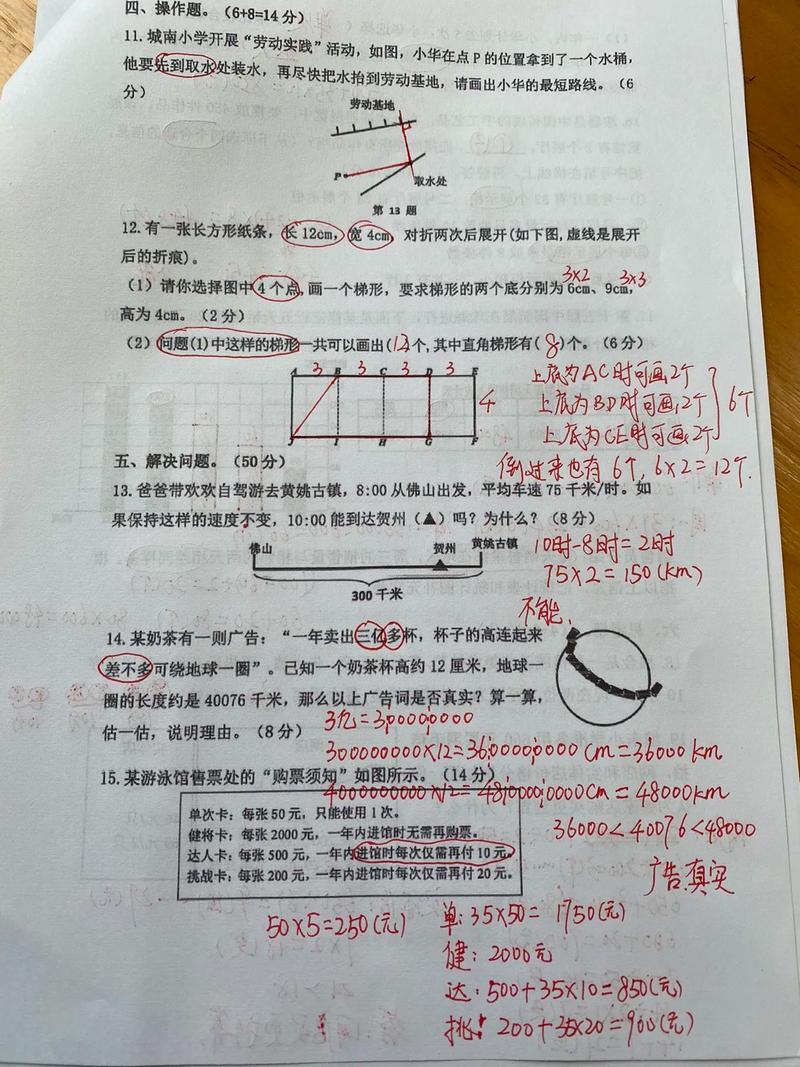 四、操作题。（6+8=14 分）
11. 城南小学开展“劳动实践”活动，如图，小华在点 P 的位置拿到了一个水桶，
他要先到取水处装水，再尽快把水抬到劳动基地，请画出小华的最短路线。（6
分）
劳动基地
P
取水处
第 13 题
12. 有一张长方形纸条，长 12cm，宽 4cm，对折两次后展开(如下图,虚线是展开
后的折痕)。
3×2 3×3
（1）请你选择图中 4 个点,画一个梯形，要求梯形的两个底分别为 6cm、9cm,
高为 4cm。（2 分）
（2）问题(1)中这样的梯形一共可以画出(12个,其中直角梯形有( 8 )个。（6 分）
A 3 B 3 C 3 D 3 E
4
J I H G F
上底为AC时可画2个
上底为BD时可画2个
上底为CE时可画2个
6个
倒过来也有6个,6×2=12个.
五、解决问题。（50 分）
13. 爸爸带欢欢自驾游去黄姚古镇，8:00 从佛山出发，平均车速 75 千米/时。如
果保持这样的速度不变，10:00 能到达贺州（▲）吗？为什么？（8 分）
佛山 贺州 黄姚古镇
300 千米
10时-8时=2时
75×2=150(km)
不能.
14. 某奶茶有一则广告：“一年卖出三亿多杯，杯子的高连起来
差不多可绕地球一圈”。已知一个奶茶杯高约 12 厘米，地球一
圈的长度约是 40076 千米，那么以上广告词是否真实？算一算，
估一估，说明理由。（8 分）
3亿=300000000
300000000×12=3600000000cm=36000km
4000000000×12=4800000000cm=48000km
36000<40076<48000
广告真实
15. 某游泳馆售票处的“购票须知”如图所示。（14 分）
单次卡：每张 50 元，只能使用 1 次。
健将卡：每张 2000 元，一年内进馆时无需再购票。
达人卡：每张 500 元，一年内进馆时每次仅需再付 10 元。
挑战卡：每张 200 元，一年内进馆时每次仅需再付 20 元。
50×5=250(元)
单:35×50= 1750(元)
健: 2000元
达: 500+35×10=850(元)
挑: 200+35×20=900(元)